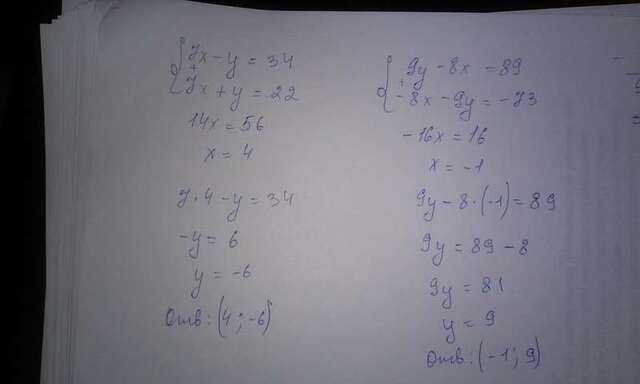 7x - y = 34
+
7x + y = 22
14x = 56
x = 4
7 · 4 - y = 34
-y = 6
y = -6
Отв: (4 ; -6)
9y - 8x = 89
+
-8x - 9y = -73
-16x = 16
x = -1
9y - 8 · (-1) = 89
9y = 89 - 8
9y = 81
y = 9
Отв: (-1 ; 9)